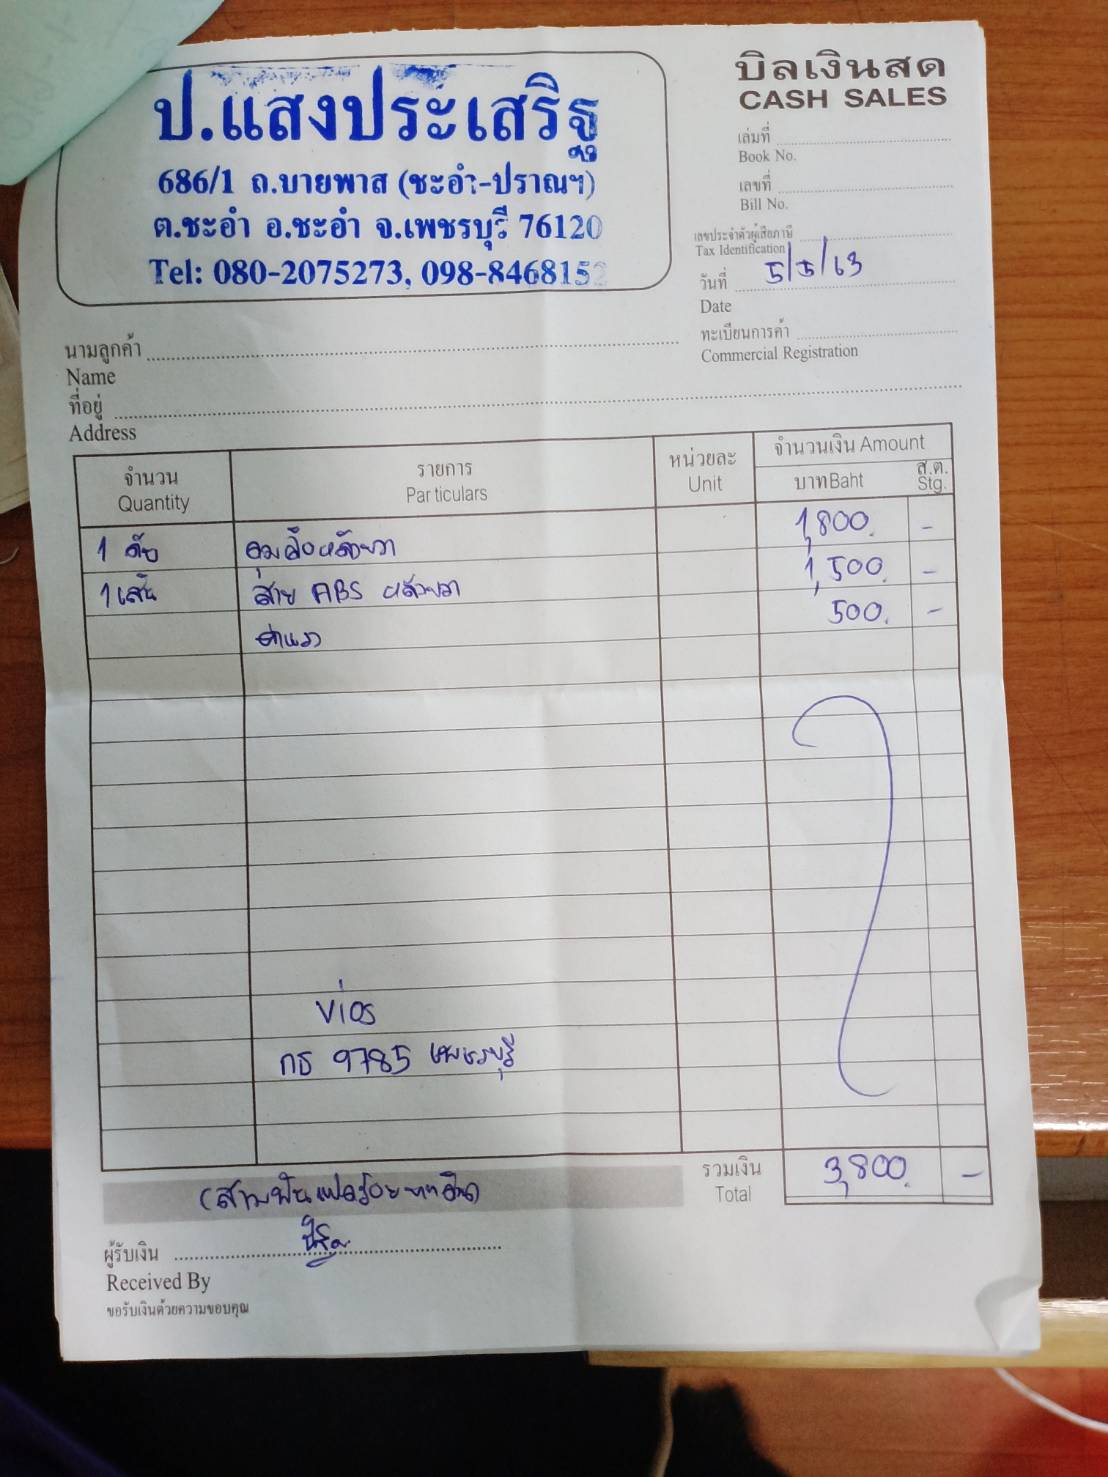 ป.แสงประเสริฐ
686/1 ถ.บายพาส (ชะอำ-ปราณฯ)
ต.ชะอำ อ.ชะอำ จ.เพชรบุรี 76120
Tel: 080-2075273, 098-846815
บิลเงินสด
CASH SALES
เล่มที่
Book No.
เลขที่
Bill No.
เลขประจำตัวผู้เสียภาษี
Tax Identification
วันที่ 5/5/63
Date
ทะเบียนการค้า
Commercial Registration
นามลูกค้า
Name
ที่อยู่
Address
จำนวน รายการ หน่วยละ จำนวนเงิน Amount
Quantity Particulars Unit บาท Baht ส.ต. Stg.
1 ตับ ขวา 1,800. -
1 เส้น สาย ABS หลังขวา 1,500. -
ค่าแรง 500. -
Vios
กธ 9785 เพชรบุรี
รวมเงิน 3,800. -
Total
(สามพันแปดร้อยบาทถ้วน)
ผู้รับเงิน
Received By
ขอรับเงินด้วยความขอบคุณ